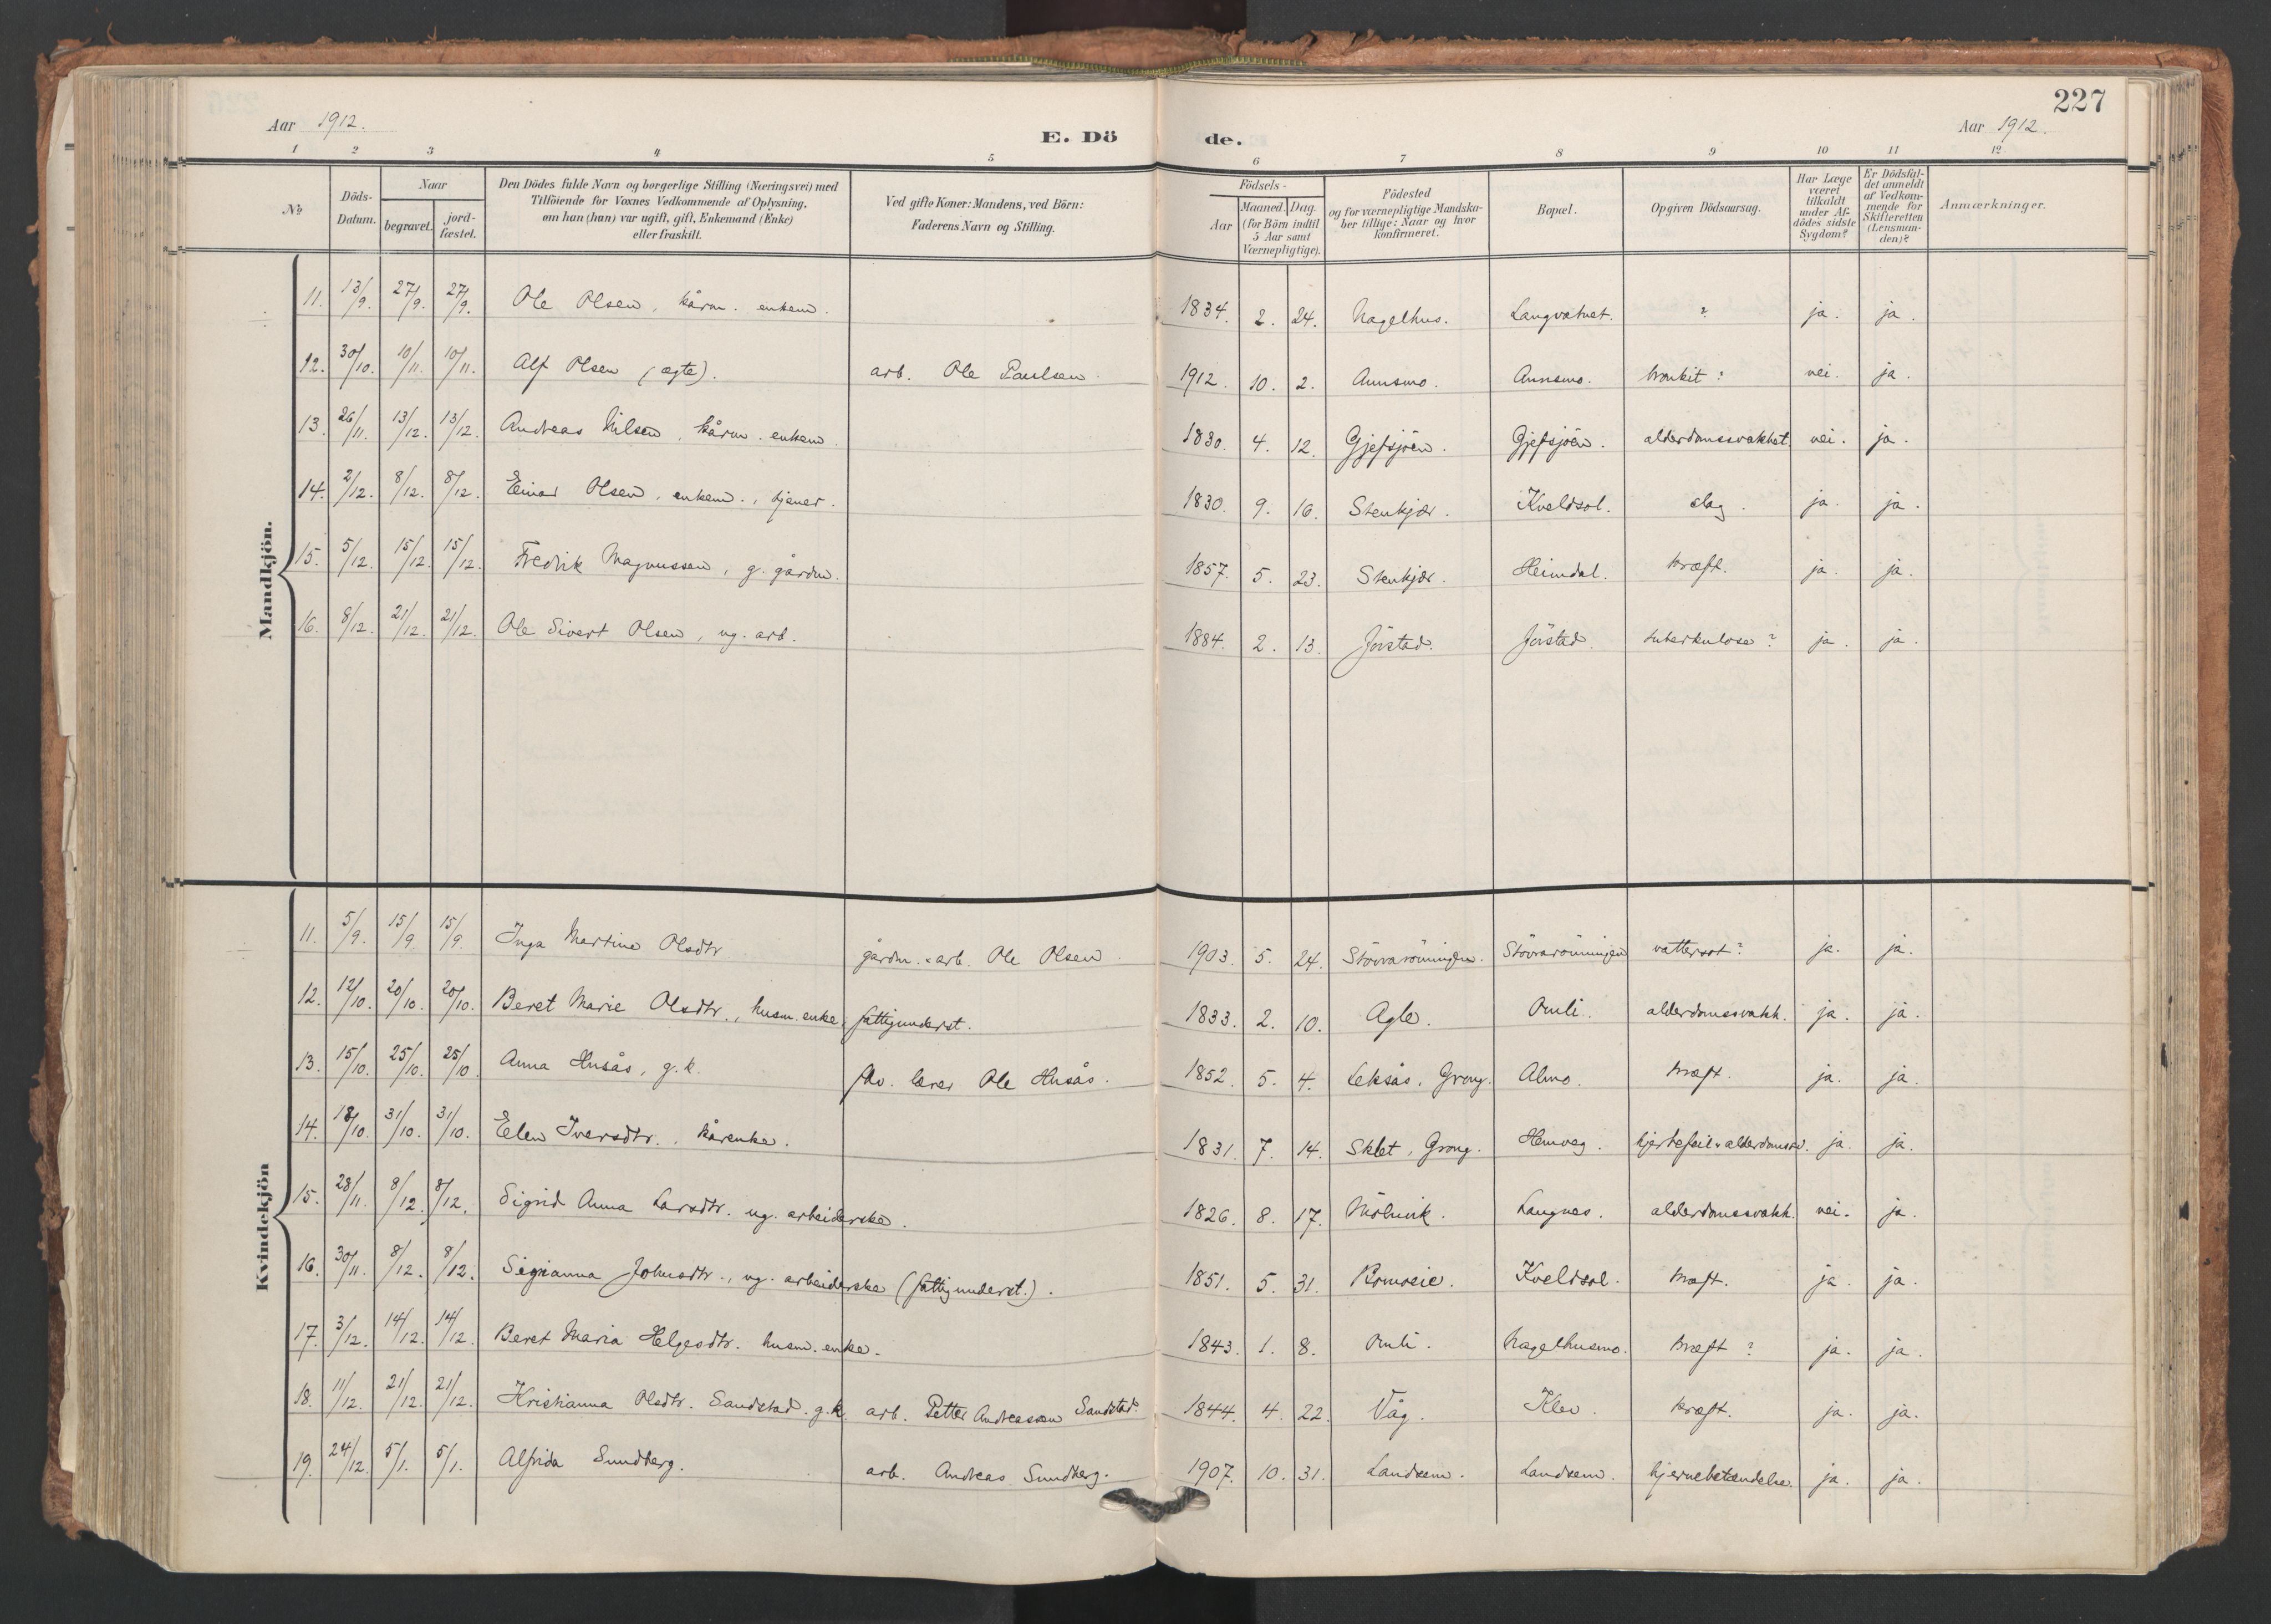 227
Aar 1912.
E. Dö de.
Aar 1912.
1 2 3 4 5 6 7 8 9 10 11 12
№
Döds-Datum.
Naar begravet. jordfæstet.
Den Dödes fulde Navn og borgerlige Stilling (Næringsvei) med Tilföiende for Voxnes Vedkommende af Oplysning, om han (hun) var ugift, gift, Enkemand (Enke) eller fraskilt.
Ved gifte Koner: Mandens, ved Börn: Faderens Navn og Stilling.
Födsels- Aar Maaned. Dag. (for Börn indtil 5 Aar samt Værnepligtige).
Födested og for værnepligtige Mandskaber tillige: Naar og hvor konfirmeret.
Bopæl.
Opgiven Dödsaarsag.
Har Læge været tilkaldt under Afdödes sidste Sygdom?
Er Dödsfaldet anmeldt af Vedkommende for Skifteretten (Lensmanden)?
Anmærkninger.
Mandkjön.
11. 13/9. 27/9. 27/9. Ole Olsen, kårm. enkem. 1834. 2. 24. Nagelhus. Langvatnet. ? ja. ja.
12. 30/10. 10/11. 10/11. Alf Olsen (ægte). arb. Ole Paulsen. 1912. 10. 2. Aunsmo. Aunsmo. bronkit? nei. ja.
13. 26/11. 13/12. 13/12. Andreas Nilsen, kårm. enkem. 1830. 4. 12. Gjefsjöen. Gjefsjöen. alderdomssvakhet nei. ja.
14. 2/12. 8/12. 8/12. Einar Olsen, enkem., tjener. 1830. 9. 16. Stenkjær. Kveldsol. slag. ja. ja.
15. 5/12. 15/12. 15/12. Fredrik Magnussen, g. gårdm. 1857. 5. 23. Stenkjær. Heimdal. kræft. ja. ja.
16. 8/12. 21/12. 21/12. Ole Sivert Olsen, ug. arb. 1884. 2. 13. Jörstad. Jörstad. tuberkulose? ja. ja.
Kvindekjön
11. 5/9. 15/9. 15/9. Inga Martine Olsdtr. gårdm. & arb. Ole Olsen. 1903. 5. 24. Stövrarönningen. Stövrarönningen vattersot? ja. ja.
12. 12/10. 20/10. 20/10. Beret Marie Olsdtr., husm. enke, fattigunderst. 1833. 2. 10. Agle. Omli. alderdomssvakh. ja. ja.
13. 15/10. 25/10. 25/10. Anna Husås, g.k. fhv. lærer Ole Husås. 1852. 5. 4. Leksås, Grong. Almo. kræft. ja. ja.
14. 18/10. 31/10. 31/10. Elen Iversdtr., kårenke. 1831. 7. 14. Sklet, Grong. Hemveg. hjertefeil & alderdomssv. ja. ja.
15. 28/11. 8/12. 8/12. Sigrid Anna Larsdtr. ug. arbeiderske. 1826. 8. 17. Mölnvik. Langnes. alderdomssvakh. nei. ja.
16. 30/11. 8/12. 8/12. Sigrianna Johnsdtr., ug. arbeiderske (fattigunderst.). 1851. 5. 31. Romoeie. Kveldsol. kræft. ja. ja.
17. 3/12. 14/12. 14/12. Beret Maria Helgesdtr. husm. enke. 1843. 1. 8. Omli. Nagelhusmo. kræft? ja. ja.
18. 11/12. 21/12. 21/12. Kristianna Olsdtr. Sandstad. g.k. arb. Petter Andreassen Sandstad. 1844. 4. 22. Våg. Klev. kræft. ja. ja.
19. 24/12. 5/1. 5/1. Alfrida Sundberg. arb. Andreas Sundberg. 1907. 10. 31. Landsem. Landsem. hjernebetændelse. ja. ja.